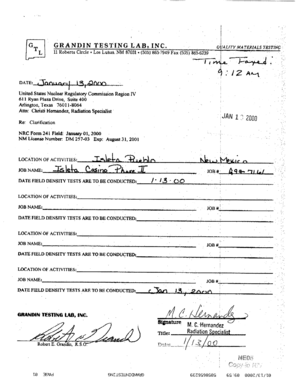 G T L
GRANDIN TESTING LAB, INC.
QUALITY MATERIALS TESTING
11 Roberts Circle • Los Lunas, NM 87031 •
Time Faxed:
9:12 AM
DATE: January 13, 2000
United States Nuclear Regulatory Commission Region IV
611 Ryan Plaza Drive, Suite 400
Arlington, Texas 76011-8064
Attn: Christi Hernandez, Radiation Specialist
JAN 13 2000
Re: Clarification
NRC Form 241 Field: January 01, 2000
NM License Number: DM 257-03 Exp: August 31, 2001
LOCATION OF ACTIVITIES: Isleta Pueblo New Mexico
JOB NAME: Isleta Casino Phase II JOB #
DATE FIELD DENSITY TESTS ARE TO BE CONDUCTED: 1-13-00
LOCATION OF ACTIVITIES:
JOB NAME: JOB #
DATE FIELD DENSITY TESTS ARE TO BE CONDUCTED:
LOCATION OF ACTIVITIES:
JOB NAME: JOB #
DATE FIELD DENSITY TESTS ARE TO BE CONDUCTED:
LOCATION OF ACTIVITIES:
JOB NAME: JOB #
DATE FIELD DENSITY TESTS ARE TO BE CONDUCTED: Jan 13, 2000
GRANDIN TESTING LAB, INC.
M. C. Hernandez
Signature M. C. Hernandez
Title Radiation Specialist
Robert E. Grandin, R.S.O.
Date 1/13/00